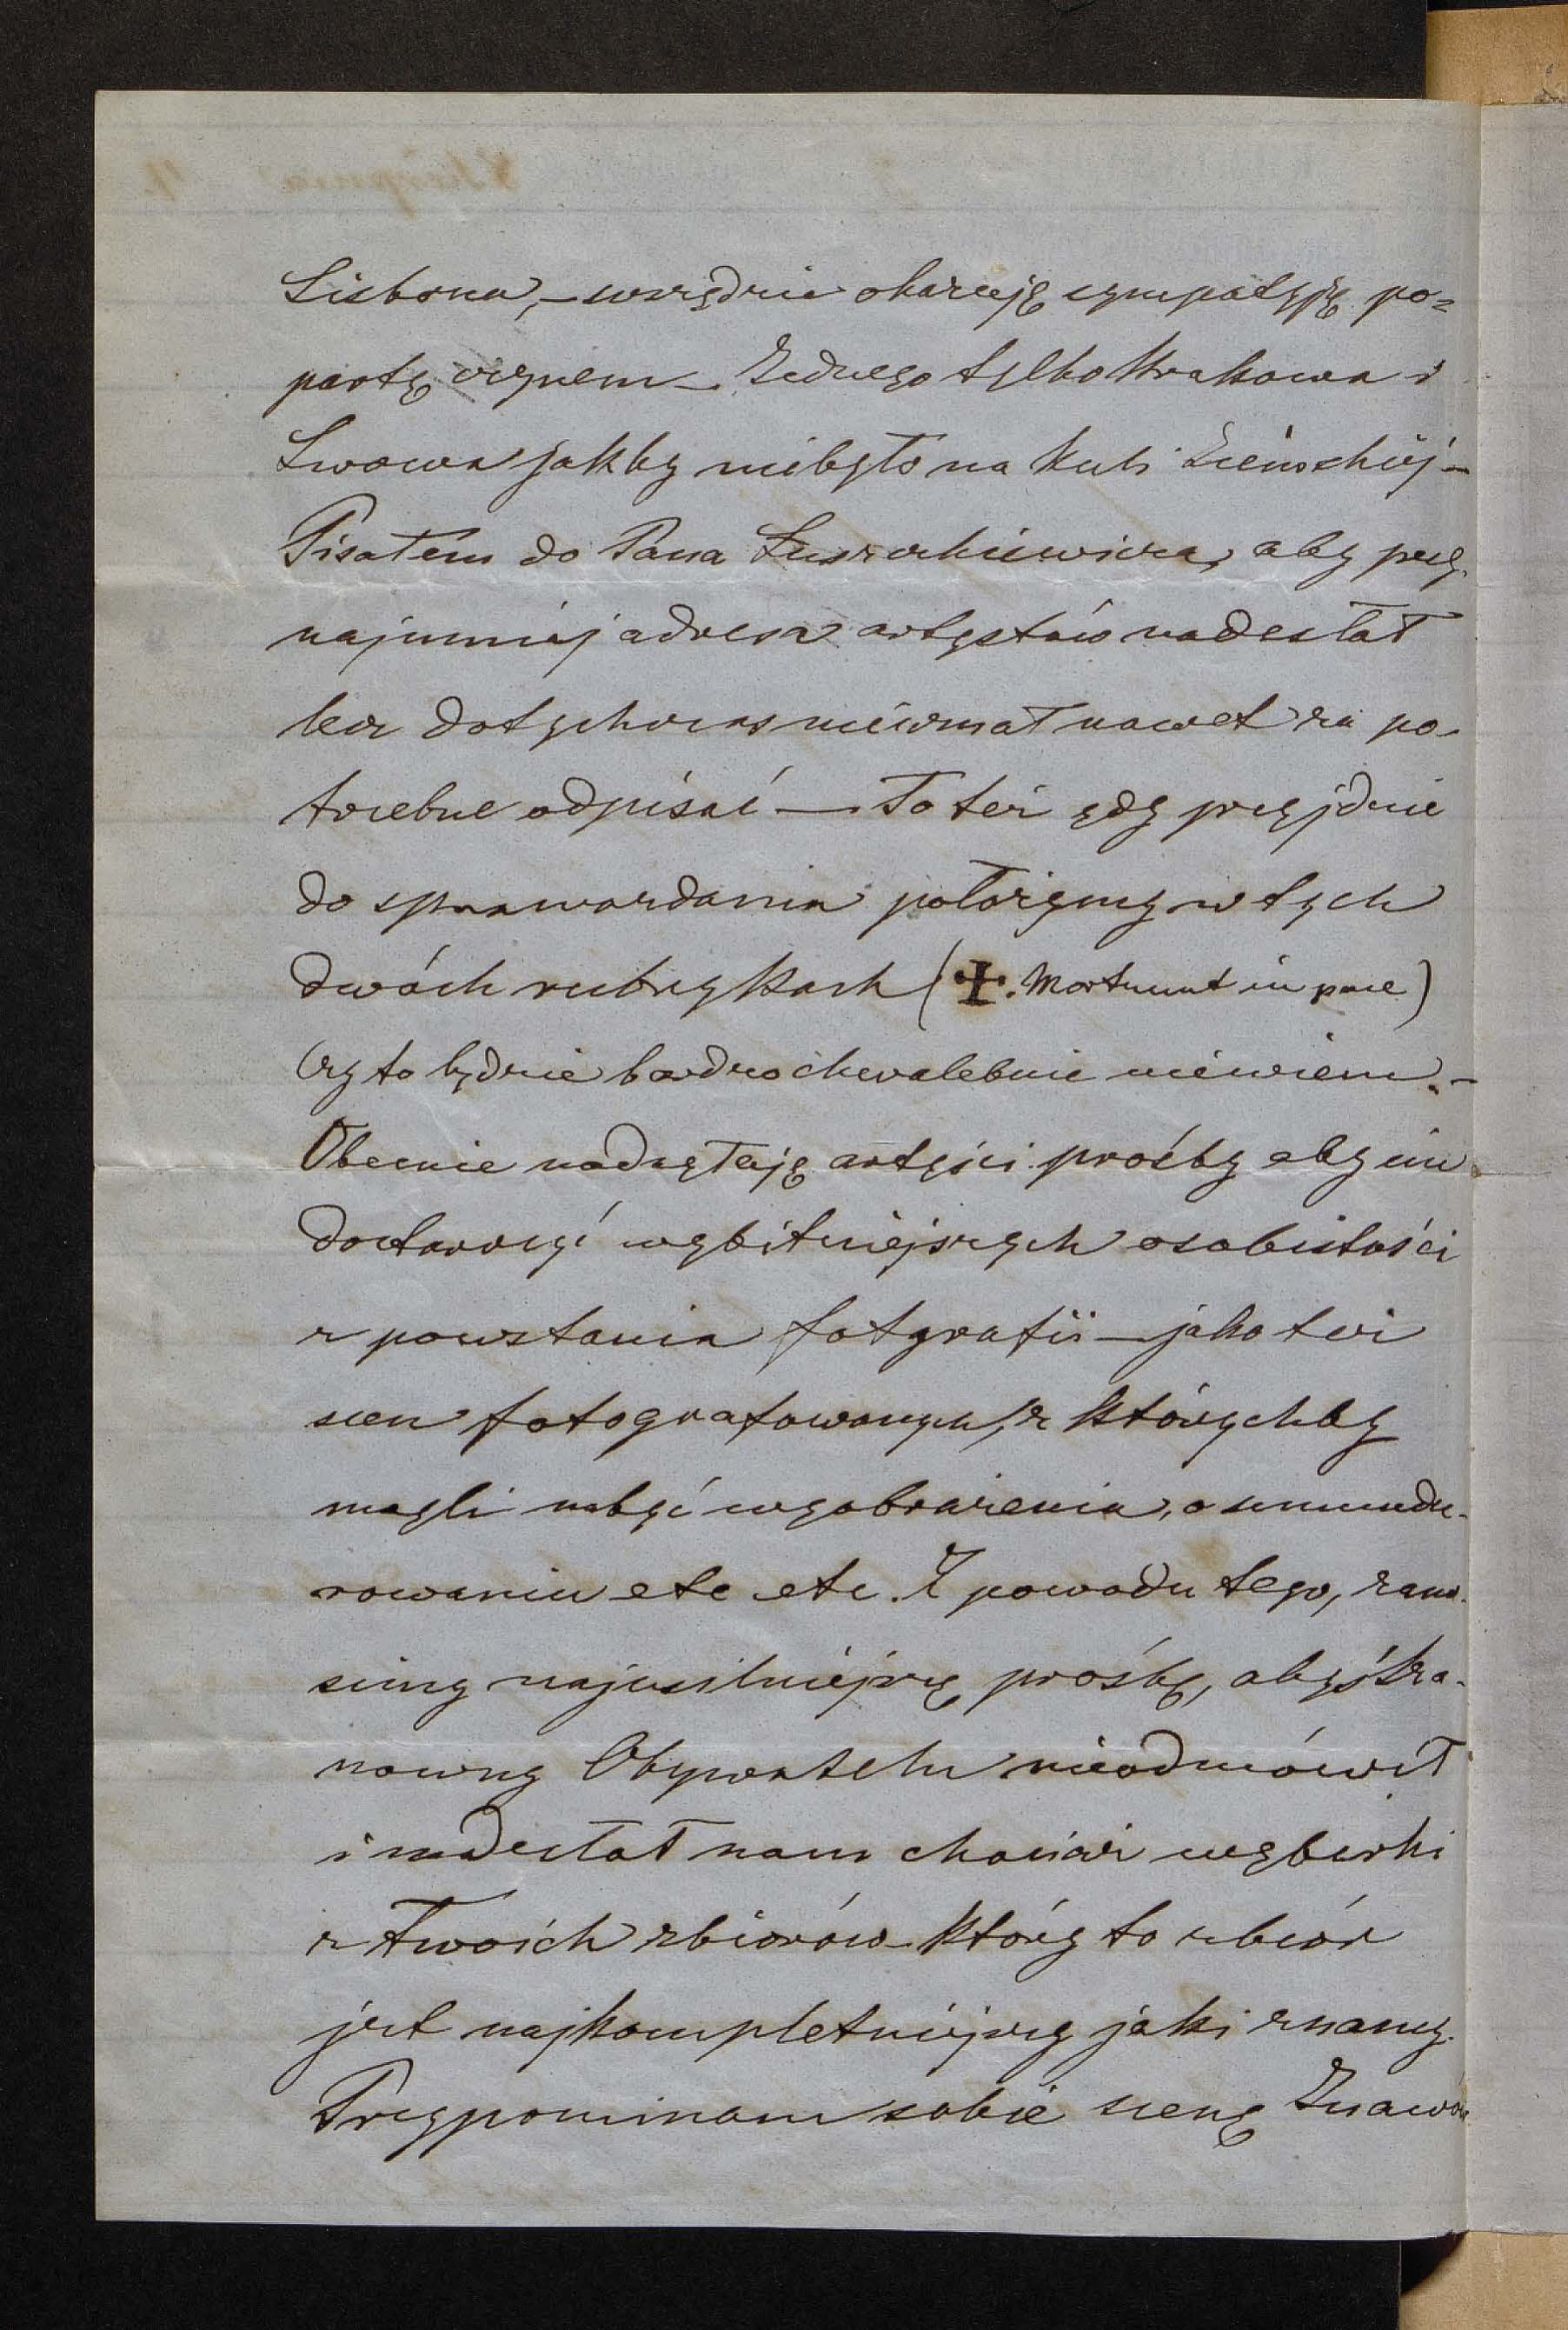 Lisbona, – wszędzie okazują sympatyją po=
partą czynem – Jednego tylko Krakowa i
Lwowa jakby niebyło na kuli Ziemskiéj –
Pisałem do Pana Łuszczkiewicza, aby przy-
najmniéj adresa artystów nadesłał
lecz dotychczas nieuznał nawet za po-
trzebne odpisać – To też gdy przyjdzie
do sprawozdania położymy w tych
dwóch rubrykach (✠. Mortuunt in pace)
Czy to będzie bardzo chwalebnie niewiem. –
Obecnie nadsyłają artyści prośby aby im
dostarczyć wybitniejszych osobistości
z powstania fotgrafii – jako też
scen fotografowanych, z którychby
mogli nabyć wyobrażenia, o umundu-
rowaniu etc etc. Z powodu tego, zano-
simy najusilniéjszą prośbę, abyś Sza-
nowny Obywatelu nieodmówił
i nadesłał nam chociaż wybiórki
z Twoich zbiorów który to zbiór
jest najkompletniéjszy jaki znamy.
Przypominam sobie scenę